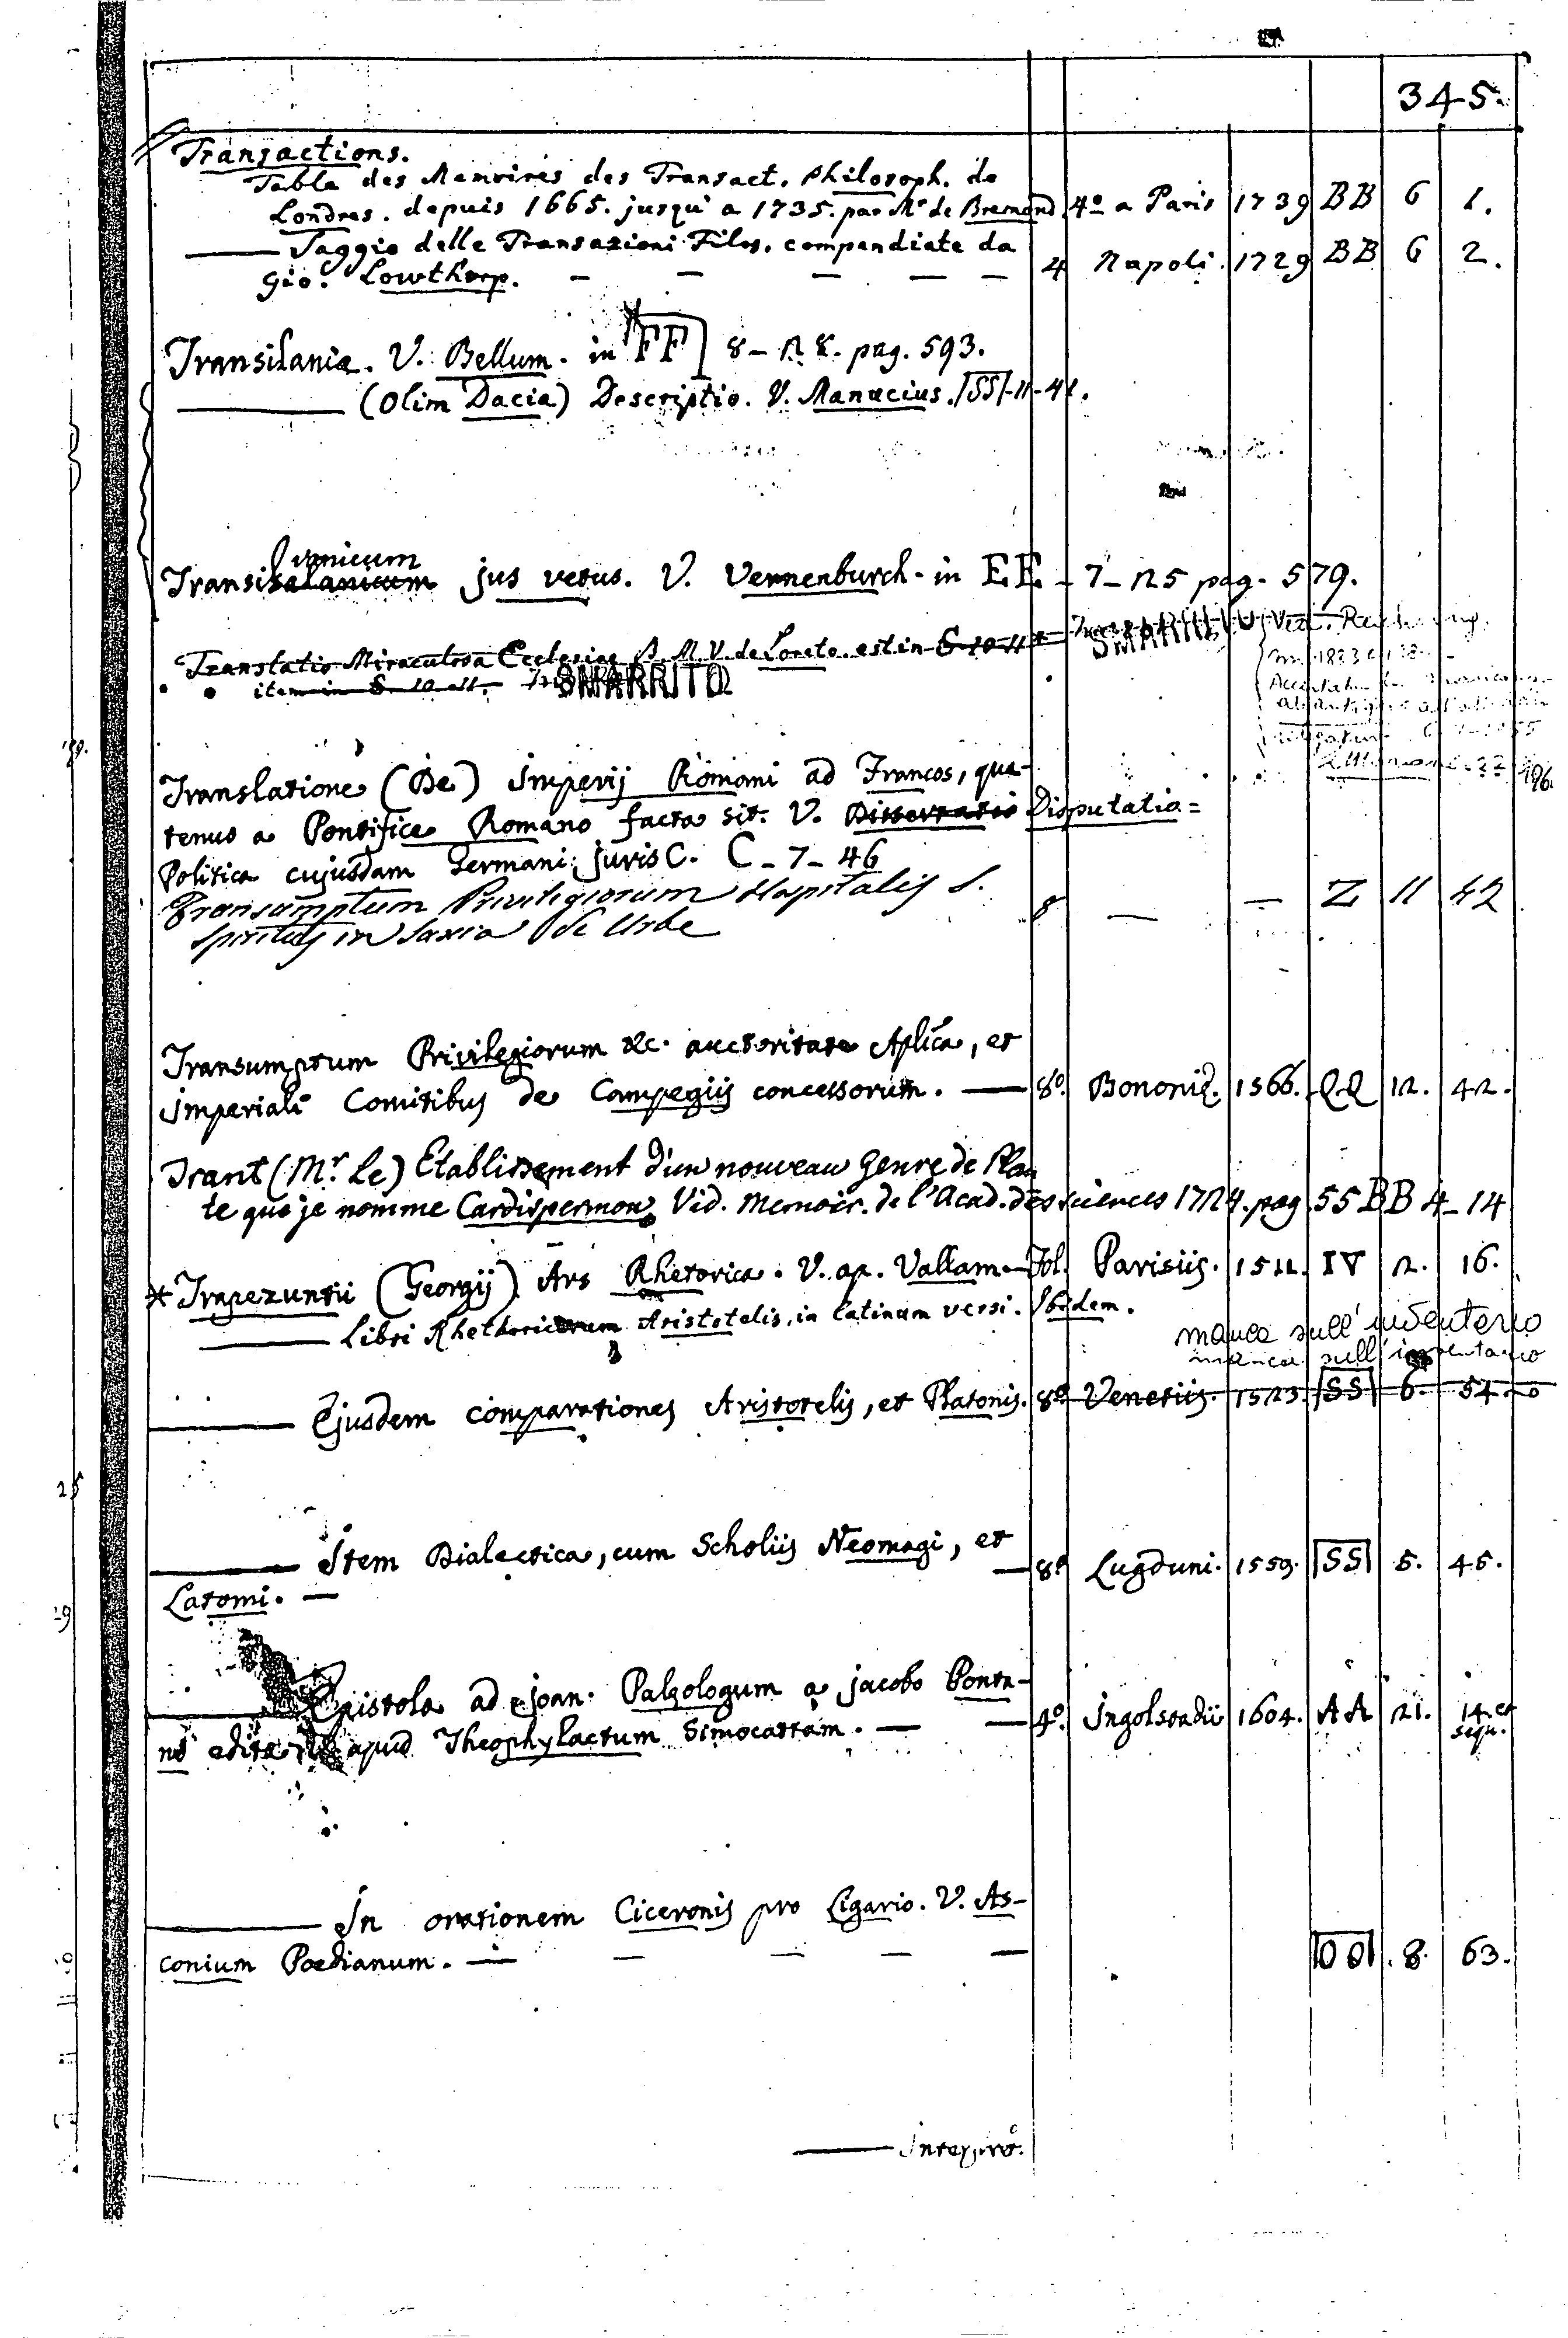 345.
Transactions.
Table des Memoires des Transact. Philosoph. de
Londres. depuis 1665. jusqu'a 1735. par Mr de Bremond 4o a Paris 1739 BB 6 1.
Saggio delle Transazioni Filos. compendiate da
Gio. Lowthorp. 4 Napoli. 1729 BB 6 2.
Transilaniæ. V. Bellum. in FF 8-12 8. pag. 593.
(Olim Dacia) Descriptio. V. Manucius. SS-11-41.
vanicum
Transisalanicum jus vetus. V. Vennenburch. in EE - 7-125 pag. 579.
Translatio Miraculosa Ecclesiae B. M. V. de Loreto. est in S 10 11 SMARRITO
item in S 10 11. SMARRITO
Translatione (De) Imperij Romani ad Francos, qua-
tenus a Pontifice Romano facta sit. V. Dissertatio Disputatio=
Politica cujusdam Germani Juris C. C-7-46
Transumptum Privilegiorum Hospitalis S.
Spiritus in Saxia de Urbe 8 — — Z 11 42
Transumptum Privilegiorum &c. auctoritate Aplica, et
Imperiali Comitibus de Campegiis concessorum. — 8o. Bononiæ. 1566. QQ 12. 42.
Trant (Mr. Le) Etablissement d'un nouveau Genre de Plan
te que je nomme Cardispermon, Vid. Memoir. de l'Acad. des sciences 1724. pag 55 BB 4-14
* Trapezuntii (Georgij) Ars Rhetorica. V. ap. Vallam. — Fol. Parisiis. 1511. IV 2. 16.
Libri Rhethoricorum Aristotelis, in latinum versi. Ibidem.
manca sull'inventario
manca sull'inventario
Ejusdem comparationes Aristotelis, et Platonis. 8o Venetiis. 1523. SS 6. 54.
Item Dialectica, cum Scholiis Neomagi, et
Latomi. — 8o Lugduni. 1559. SS 5. 45.
Epistola ad Joan. Palæologum a Jacobo Ponta-
no edita apud Theophylactum Simocattam. — 4o. Ingolstadii 1604. AA 21. 14. et
sequ.
In orationem Ciceronis pro Ligario. V. As-
conium Pædianum. — OO 8. 63.
Interpres.